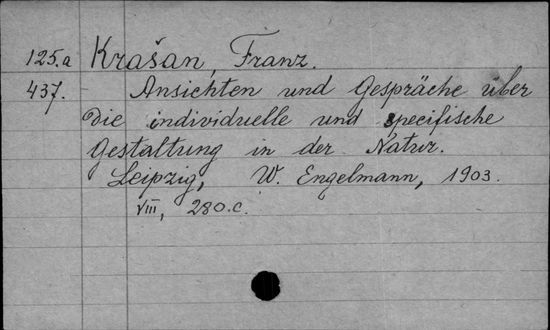 125.a Krašan, Franz.
437. Ansichten und Gespräche über
die individuelle und specifische
Gestaltung in der Natur.
Leipzig, W. Engelmann, 1903.
VIII, 280.c.